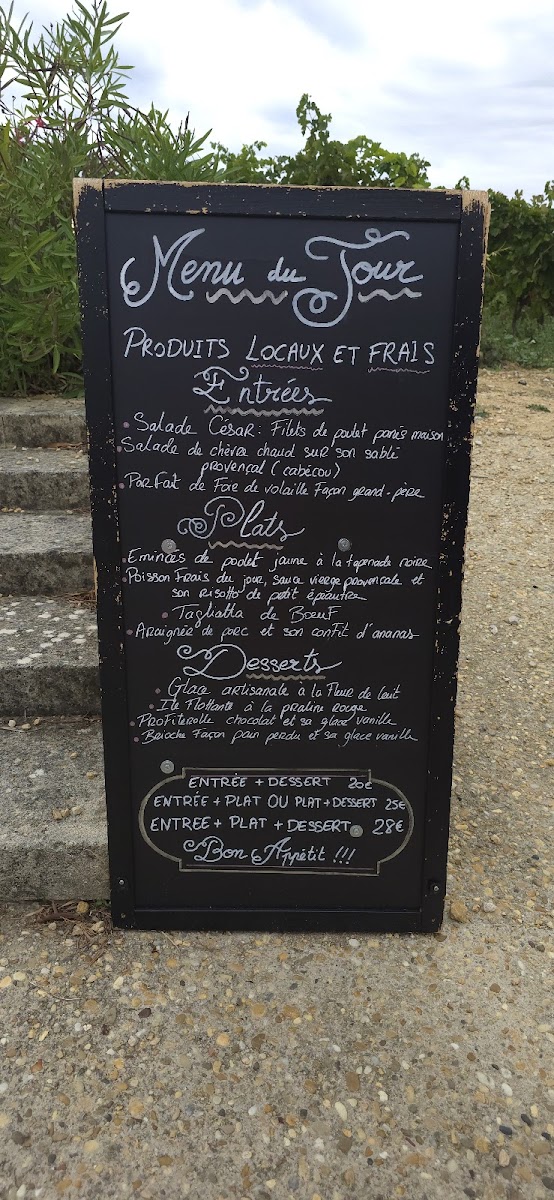 Menu du Jour
PRODUITS LOCAUX ET FRAIS
Entrées
Salade César: Filets de poulet panés maison
Salade de chèvre chaud sur son sablé
provençal (cabécou)
Parfait de Foie de volaille Façon grand-père
Plats
Emincés de poulet jaune à la tapenade noire
Poisson Frais du jour, sauce vierge provençale et
son Risotto de petit épeautre
Tagliatta de Boeuf
Araignée de porc et son confit d'ananas
Desserts
Glace artisanale à la Fleur de lait
Ile Flottante à la praline rouge
Profiterolle chocolat et sa glace vanille
Brioche Façon pain perdu et sa glace vanille
ENTRÉE + DESSERT 20€
ENTRÉE + PLAT OU PLAT + DESSERT 25€
ENTREE + PLAT + DESSERT 28€
Bon Appétit !!!